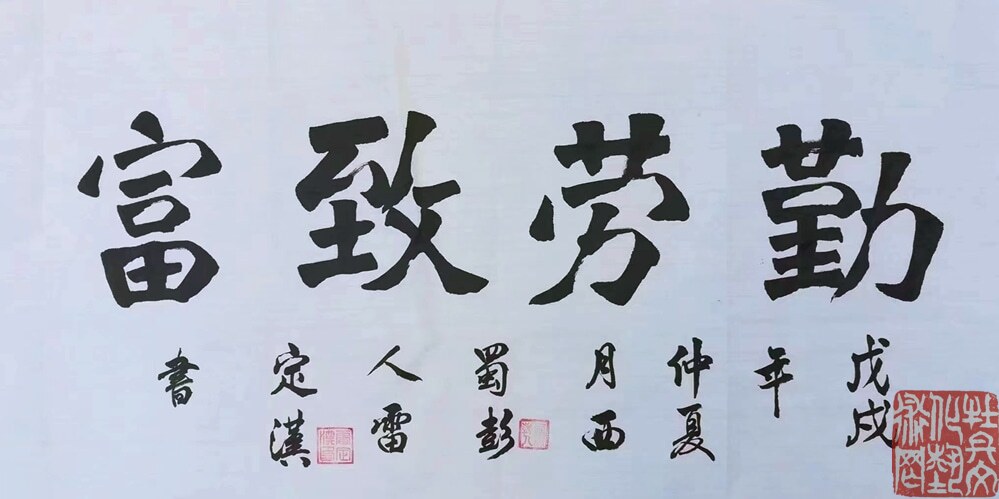 勤劳致富
戊戌
年
仲夏
月西
蜀彭
人雷
定漢
書